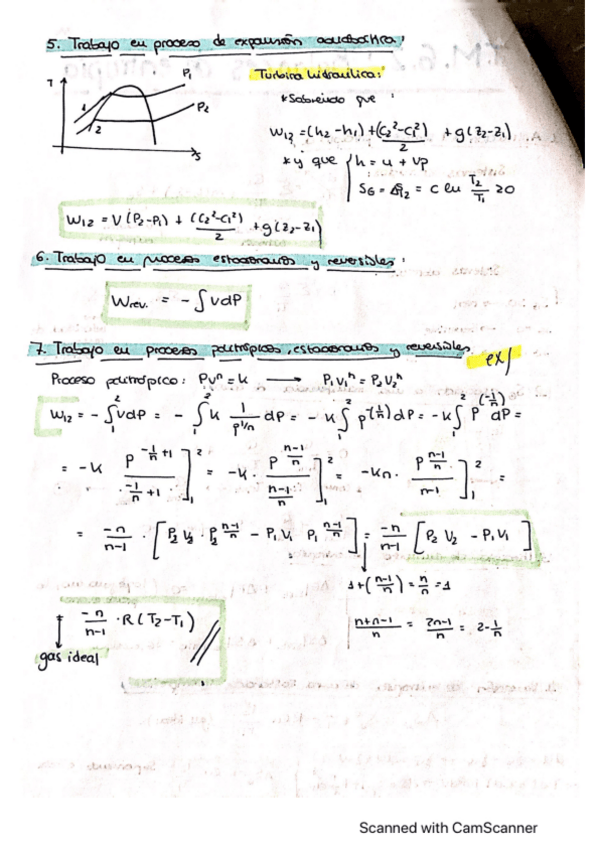 5. Trabajo en proceso de expansión adiabática:
T
P1
P2
1
2
s
Turbina hidráulica:
*Sabiendo que :
W12 = (h2 - h1) + (C2² - C1²)/2 + g(z2 - z1)
* y que { h = u + vp
SG = ΔS12 = C ln T2/T1 ≥ 0
W12 = V(P2 - P1) + (C2² - C1²)/2 + g(z2 - z1)
6. Trabajo en procesos estacionarios y reversibles:
Wrev. = - ∫ vdP
7. Trabajo en procesos politrópicos, estacionarios y reversibles
ex/
Proceso politrópico: PVⁿ = k → P1V1ⁿ = P2V2ⁿ
W12 = - ∫₁² vdP = - ∫₁² k 1/P^(1/n) dP = - k ∫₁² P^(1/n) dP = - k ∫₁² P^(-1/n) dP =
= - k P^(-1/n + 1) / (-1/n + 1) ]₁² = - k · P^((n-1)/n) / ((n-1)/n) ]₁² = - kn · P^((n-1)/n) / (n-1) ]₁² =
= -n/(n-1) · [ P2 V2 · P2^((n-1)/n) - P1 V1 P1^((n-1)/n) ] = -n/(n-1) [ P2 V2 - P1 V1 ]
1 + ((n-1)/n) = n/n = 1
-n/(n-1) · R (T2 - T1)
(n+n-1)/n = (2n-1)/n = 2 - 1/n
gas ideal
Scanned with CamScanner